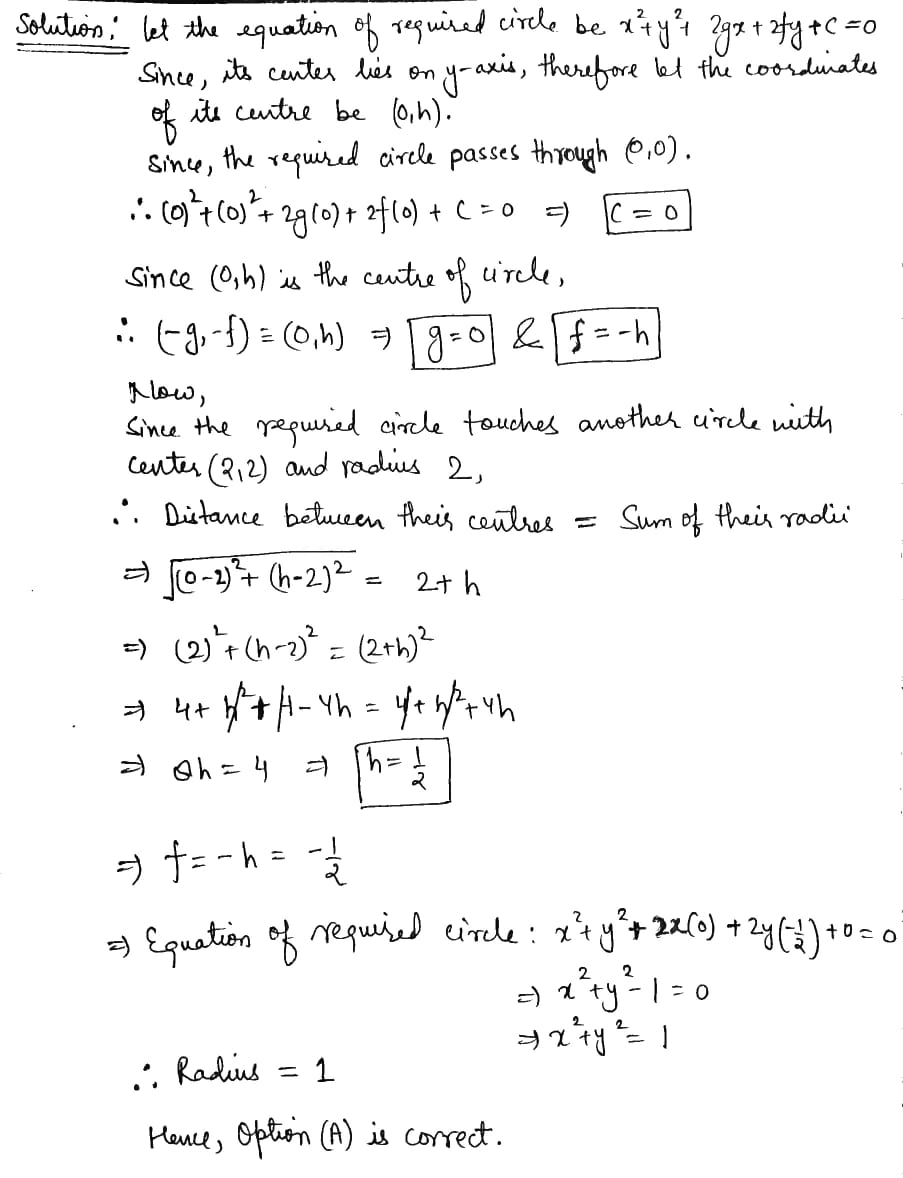 Solution: let the equation of required circle be x²+y²+ 2gx + 2fy + C = 0
Since, its center lies on y-axis, therefore let the coordinates
of its centre be (0,h).
Since, the required circle passes through (0,0).
∴ (0)²+(0)²+ 2g(0)+ 2f(0) + C = 0 ⇒ C = 0
Since (0,h) is the centre of circle,
∴ (-g,-f) ≡ (0,h) ⇒ g=0 & f = -h
Now,
Since the required circle touches another circle with
center (2,2) and radius 2,
∴ Distance between their centres = Sum of their radii
⇒ √(0-2)²+ (h-2)² = 2+h
⇒ (2)²+(h-2)² = (2+h)²
⇒ 4+ h²+4-4h = 4+h²+4h
⇒ 8h = 4 ⇒ h = 1/2
⇒ f = -h = -1/2
⇒ Equation of required circle: x²+y²+ 2x(0) + 2y(-1/2) + 0 = 0
⇒ x²+y²-1 = 0
⇒ x²+y² = 1
∴ Radius = 1
Hence, Option (A) is correct.